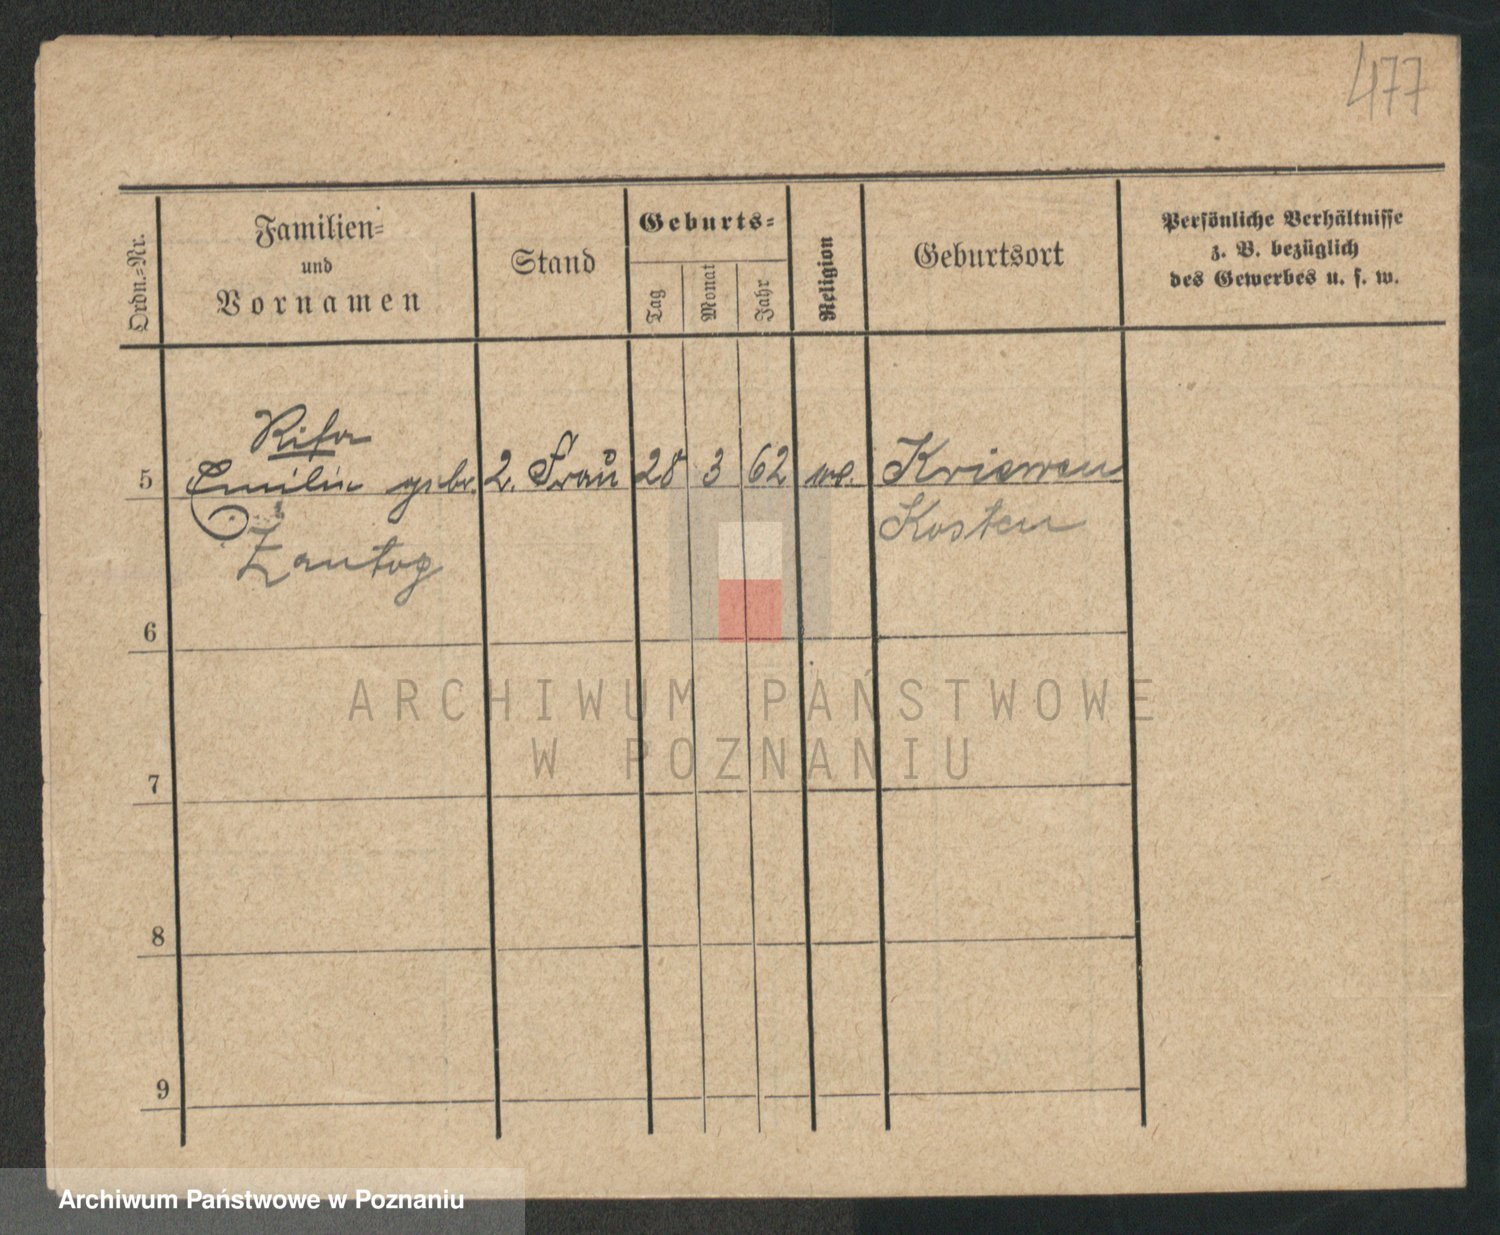 477
Ordn.=Nr.
Familien=
und
Vornamen
Stand
Geburts=
Tag
Monat
Jahr
Religion
Geburtsort
Persönliche Verhältnisse
z. B. bezüglich
des Gewerbes u. s. w.
5
Emilie geb. 2. Frau 28 3 62 Kriewen
Kosten
Zantog
6
7
8
9
ARCHIWUM PAŃSTWOWE
W POZNANIU
Archiwum Państwowe w Poznaniu